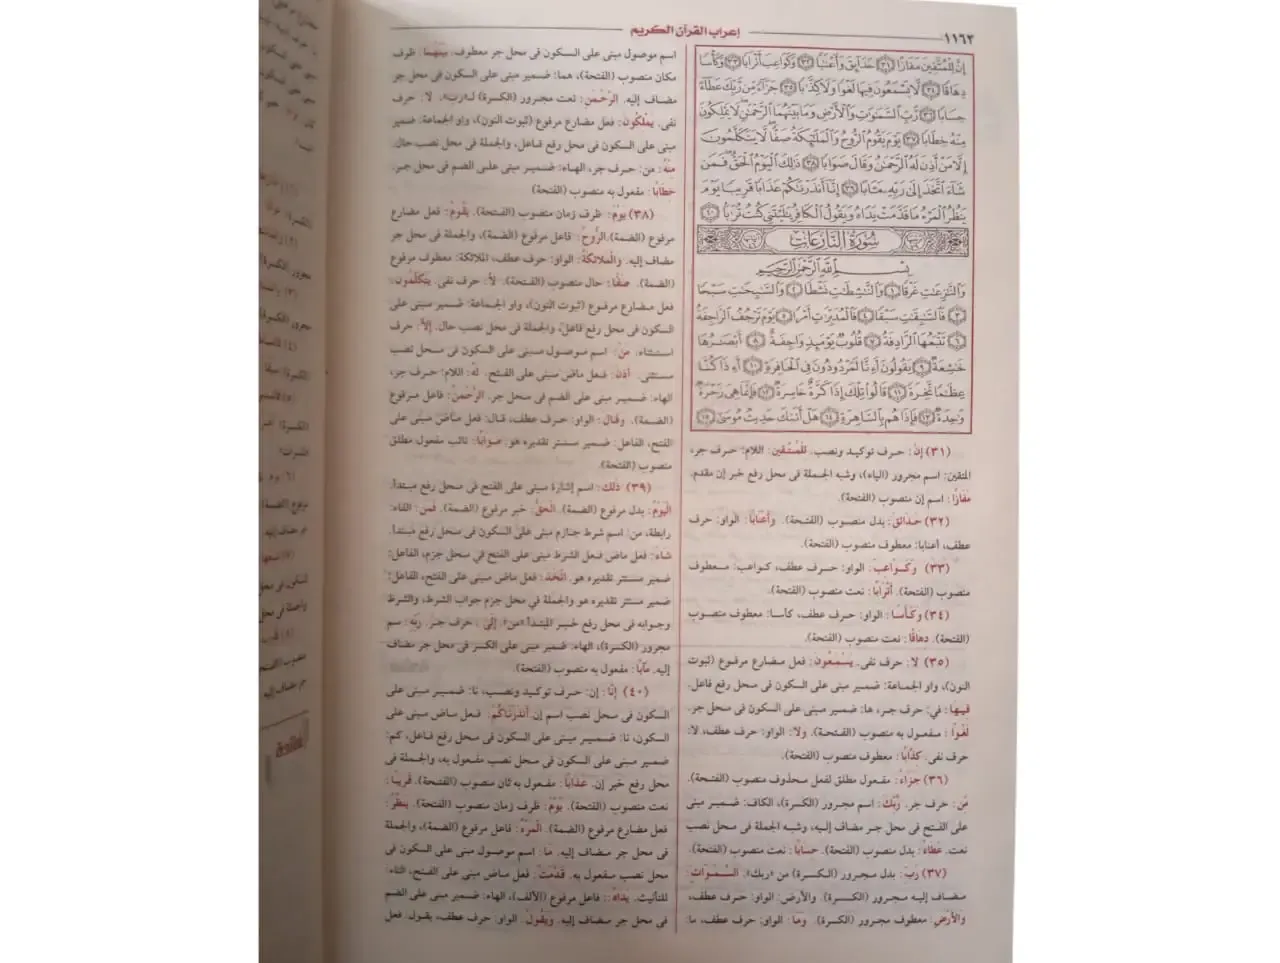 ١١٦٢
إعراب القرآن الكريم
إِنَّ لِلْمُتَّقِينَ مَفَازًا ٣١ حَدَائِقَ وَأَعْنَابًا ٣٢ وَكَوَاعِبَ أَتْرَابًا ٣٣ وَكَأْسًا
دِهَاقًا ٣٤ لَّا يَسْمَعُونَ فِيهَا لَغْوًا وَلَا كِذَّابًا ٣٥ جَزَاءً مِّن رَّبِّكَ عَطَاءً
حِسَابًا ٣٦ رَّبِّ السَّمَاوَاتِ وَالْأَرْضِ وَمَا بَيْنَهُمَا الرَّحْمَٰنِ لَا يَمْلِكُونَ
مِنْهُ خِطَابًا ٣٧ يَوْمَ يَقُومُ الرُّوحُ وَالْمَلَائِكَةُ صَفًّا لَّا يَتَكَلَّمُونَ
إِلَّا مَنْ أَذِنَ لَهُ الرَّحْمَٰنُ وَقَالَ صَوَابًا ٣٨ ذَٰلِكَ الْيَوْمُ الْحَقُّ فَمَن
شَاءَ اتَّخَذَ إِلَىٰ رَبِّهِ مَآبًا ٣٩ إِنَّا أَنذَرْنَاكُمْ عَذَابًا قَرِيبًا يَوْمَ
يَنظُرُ الْمَرْءُ مَا قَدَّمَتْ يَدَاهُ وَيَقُولُ الْكَافِرُ يَا لَيْتَنِي كُنتُ تُرَابًا ٤٠
سُورَةُ النَّازِعَاتِ
بِسْمِ اللَّهِ الرَّحْمَٰنِ الرَّحِيمِ
وَالنَّازِعَاتِ غَرْقًا ١ وَالنَّاشِطَاتِ نَشْطًا ٢ وَالسَّابِحَاتِ سَبْحًا
٣ فَالسَّابِقَاتِ سَبْقًا ٤ فَالْمُدَبِّرَاتِ أَمْرًا ٥ يَوْمَ تَرْجُفُ الرَّاجِفَةُ
٦ تَتْبَعُهَا الرَّادِفَةُ ٧ قُلُوبٌ يَوْمَئِذٍ وَاجِفَةٌ ٨ أَبْصَارُهَا
خَاشِعَةٌ ٩ يَقُولُونَ أَءِنَّا لَمَرْدُودُونَ فِي الْحَافِرَةِ ١٠ أَءِذَا كُنَّا
عِظَامًا نَّخِرَةً ١١ قَالُوا تِلْكَ إِذًا كَرَّةٌ خَاسِرَةٌ ١٢ فَإِنَّمَا هِيَ زَجْرَةٌ
وَاحِدَةٌ ١٣ فَإِذَا هُم بِالسَّاهِرَةِ ١٤ هَلْ أَتَاكَ حَدِيثُ مُوسَىٰ ١٥
(٣١) إنَّ: حرف توكيد ونصب. للمُتقين: اللام: حرف جر،
المتقين: اسم مجرور (الياء)، وشبه الجملة فى محل رفع خبر إن مقدم.
مَفَازًا: اسم إن منصوب (الفتحة).
(٣٢) حدائق: بدل منصوب (الفتحة). وأعنابًا: الواو: حرف
عطف، أعنابا: معطوف منصوب (الفتحة).
(٣٣) وكواعب: الواو: حرف عطف، كواعب: معطوف
منصوب (الفتحة). أترابًا: نعت منصوب (الفتحة).
(٣٤) وكأسًا: الواو: حرف عطف، كأسا: معطوف منصوب
(الفتحة). دهاقًا: نعت منصوب (الفتحة).
(٣٥) لا: حرف نفى. يسمعُون: فعل مضارع مرفوع (ثبوت
النون)، واو الجماعة: ضمير مبنى على السكون فى محل رفع فاعل.
فيها: في: حرف جر، ها: ضمير مبنى على السكون فى محل جر.
لغوًا: مفعول به منصوب (الفتحة). ولا: الواو: حرف عطف، لا:
حرف نفى. كذَّابًا: معطوف منصوب (الفتحة).
(٣٦) جزاءً: مفعول مطلق لفعل محذوف منصوب (الفتحة).
من: حرف جر. رَّبِّك: اسم مجرور (الكسرة)، الكاف: ضمير مبنى
على الفتح فى محل جر مضاف إليه، وشبه الجملة فى محل نصب
نعت. عطاءً: بدل منصوب (الفتحة). حسابًا: نعت منصوب (الفتحة).
(٣٧) رَّبِّ: بدل مجرور (الكسرة) من «ربك». السَّمَوات:
مضاف إليه مجرور (الكسرة). والأرض: الواو: حرف عطف،
والأرض معطوف مجرور (الكسرة). وما: الواو: حرف عطف، ما:
اسم موصول مبنى على السكون فى محل جر معطوف. بينهُما: ظرف
مكان منصوب (الفتحة)، هما: ضمير مبنى على السكون فى محل جر
مضاف إليه. الرَّحْمَن: نعت مجرور (الكسرة) لـ«رب». لا: حرف
نفى. يملكُون: فعل مضارع مرفوع (ثبوت النون)، واو الجماعة: ضمير
مبنى على السكون فى محل رفع فاعل، والجملة فى محل نصب حال.
منْهُ: من: حرف جر، الهاء: ضمير مبنى على الضم فى محل جر.
خطابًا: مفعول به منصوب (الفتحة)
(٣٨) يوْم: ظرف زمان منصوب (الفتحة). يقُومُ: فعل مضارع
مرفوع (الضمة). الرُّوحُ: فاعل مرفوع (الضمة)، والجملة فى محل جر
مضاف إليه. والملائكةُ: الواو: حرف عطف، الملائكة: معطوف مرفوع
(الضمة). صفًّا: حال منصوب (الفتحة). لا: حرف نفى. يتكلَّمُون:
فعل مضارع مرفوع (ثبوت النون)، واو الجماعة: ضمير مبنى على
السكون فى محل رفع فاعل، والجملة فى محل نصب حال. إلاَّ: حرف
استثناء. منْ: اسم موصول مبنى على السكون فى محل نصب
مستثنى. أذن: فعل ماض مبنى على الفتح. لهُ: اللام: حرف جر،
الهاء: ضمير مبنى على الضم فى محل جر. الرَّحْمَنُ: فاعل مرفوع
(الضمة). وقال: الواو: حرف عطف، قال: فعل ماض مبنى على
الفتح، الفاعل: ضمير مستتر تقديره هو. صوابًا: نائب مفعول مطلق
منصوب (الفتحة).
(٣٩) ذلك: اسم إشارة مبنى على الفتح فى محل رفع مبتدأ.
اليومُ: بدل مرفوع (الضمة). الحقُّ: خبر مرفوع (الضمة). فمن: الفاء:
رابطة، من: اسم شرط جازم مبنى على السكون فى محل رفع مبتدأ.
شاء: فعل ماض فعل الشرط مبنى على الفتح فى محل جزم، الفاعل:
ضمير مستتر تقديره هو. اتَّخذ: فعل ماض مبنى على الفتح، الفاعل:
ضمير مستتر تقديره هو والجملة فى محل جزم جواب الشرط، والشرط
وجوابه فى محل رفع خبر المبتدأ «من». إلى: حرف جر. ربِّه: سم
مجرور (الكسرة)، الهاء: ضمير مبنى على الكسر فى محل جر مضاف
إليه. مآبًا: مفعول به منصوب (الفتحة)
(٤٠) إنَّا: إن: حرف توكيد ونصب، نا: ضمير مبنى على
السكون فى محل نصب اسم إن. أنذرناكُمْ: فعل ماض مبنى على
السكون، نا: ضمير مبنى على السكون فى محل رفع فاعل، كم:
ضمير مبنى على السكون فى محل نصب مفعول به، والجملة فى
محل رفع خبر إن. عذابًا: مفعول به ثان منصوب (الفتحة). قريبًا:
نعت منصوب (الفتحة). يوْم: ظرف زمان منصوب (الفتحة). ينظُرُ:
فعل مضارع مرفوع (الضمة). المرْءُ: فاعل مرفوع (الضمة)، والجملة
فى محل جر مضاف إليه. ما: اسم موصول مبنى على السكون فى
محل نصب مفعول به. قدَّمتْ: فعل ماض مبنى على الفتح، التاء:
للتأنيث. يداهُ: فاعل مرفوع (الألف)، الهاء: ضمير مبنى على الضم
فى محل جر مضاف إليه. ويقُولُ: الواو: حرف عطف، يقول: فعل